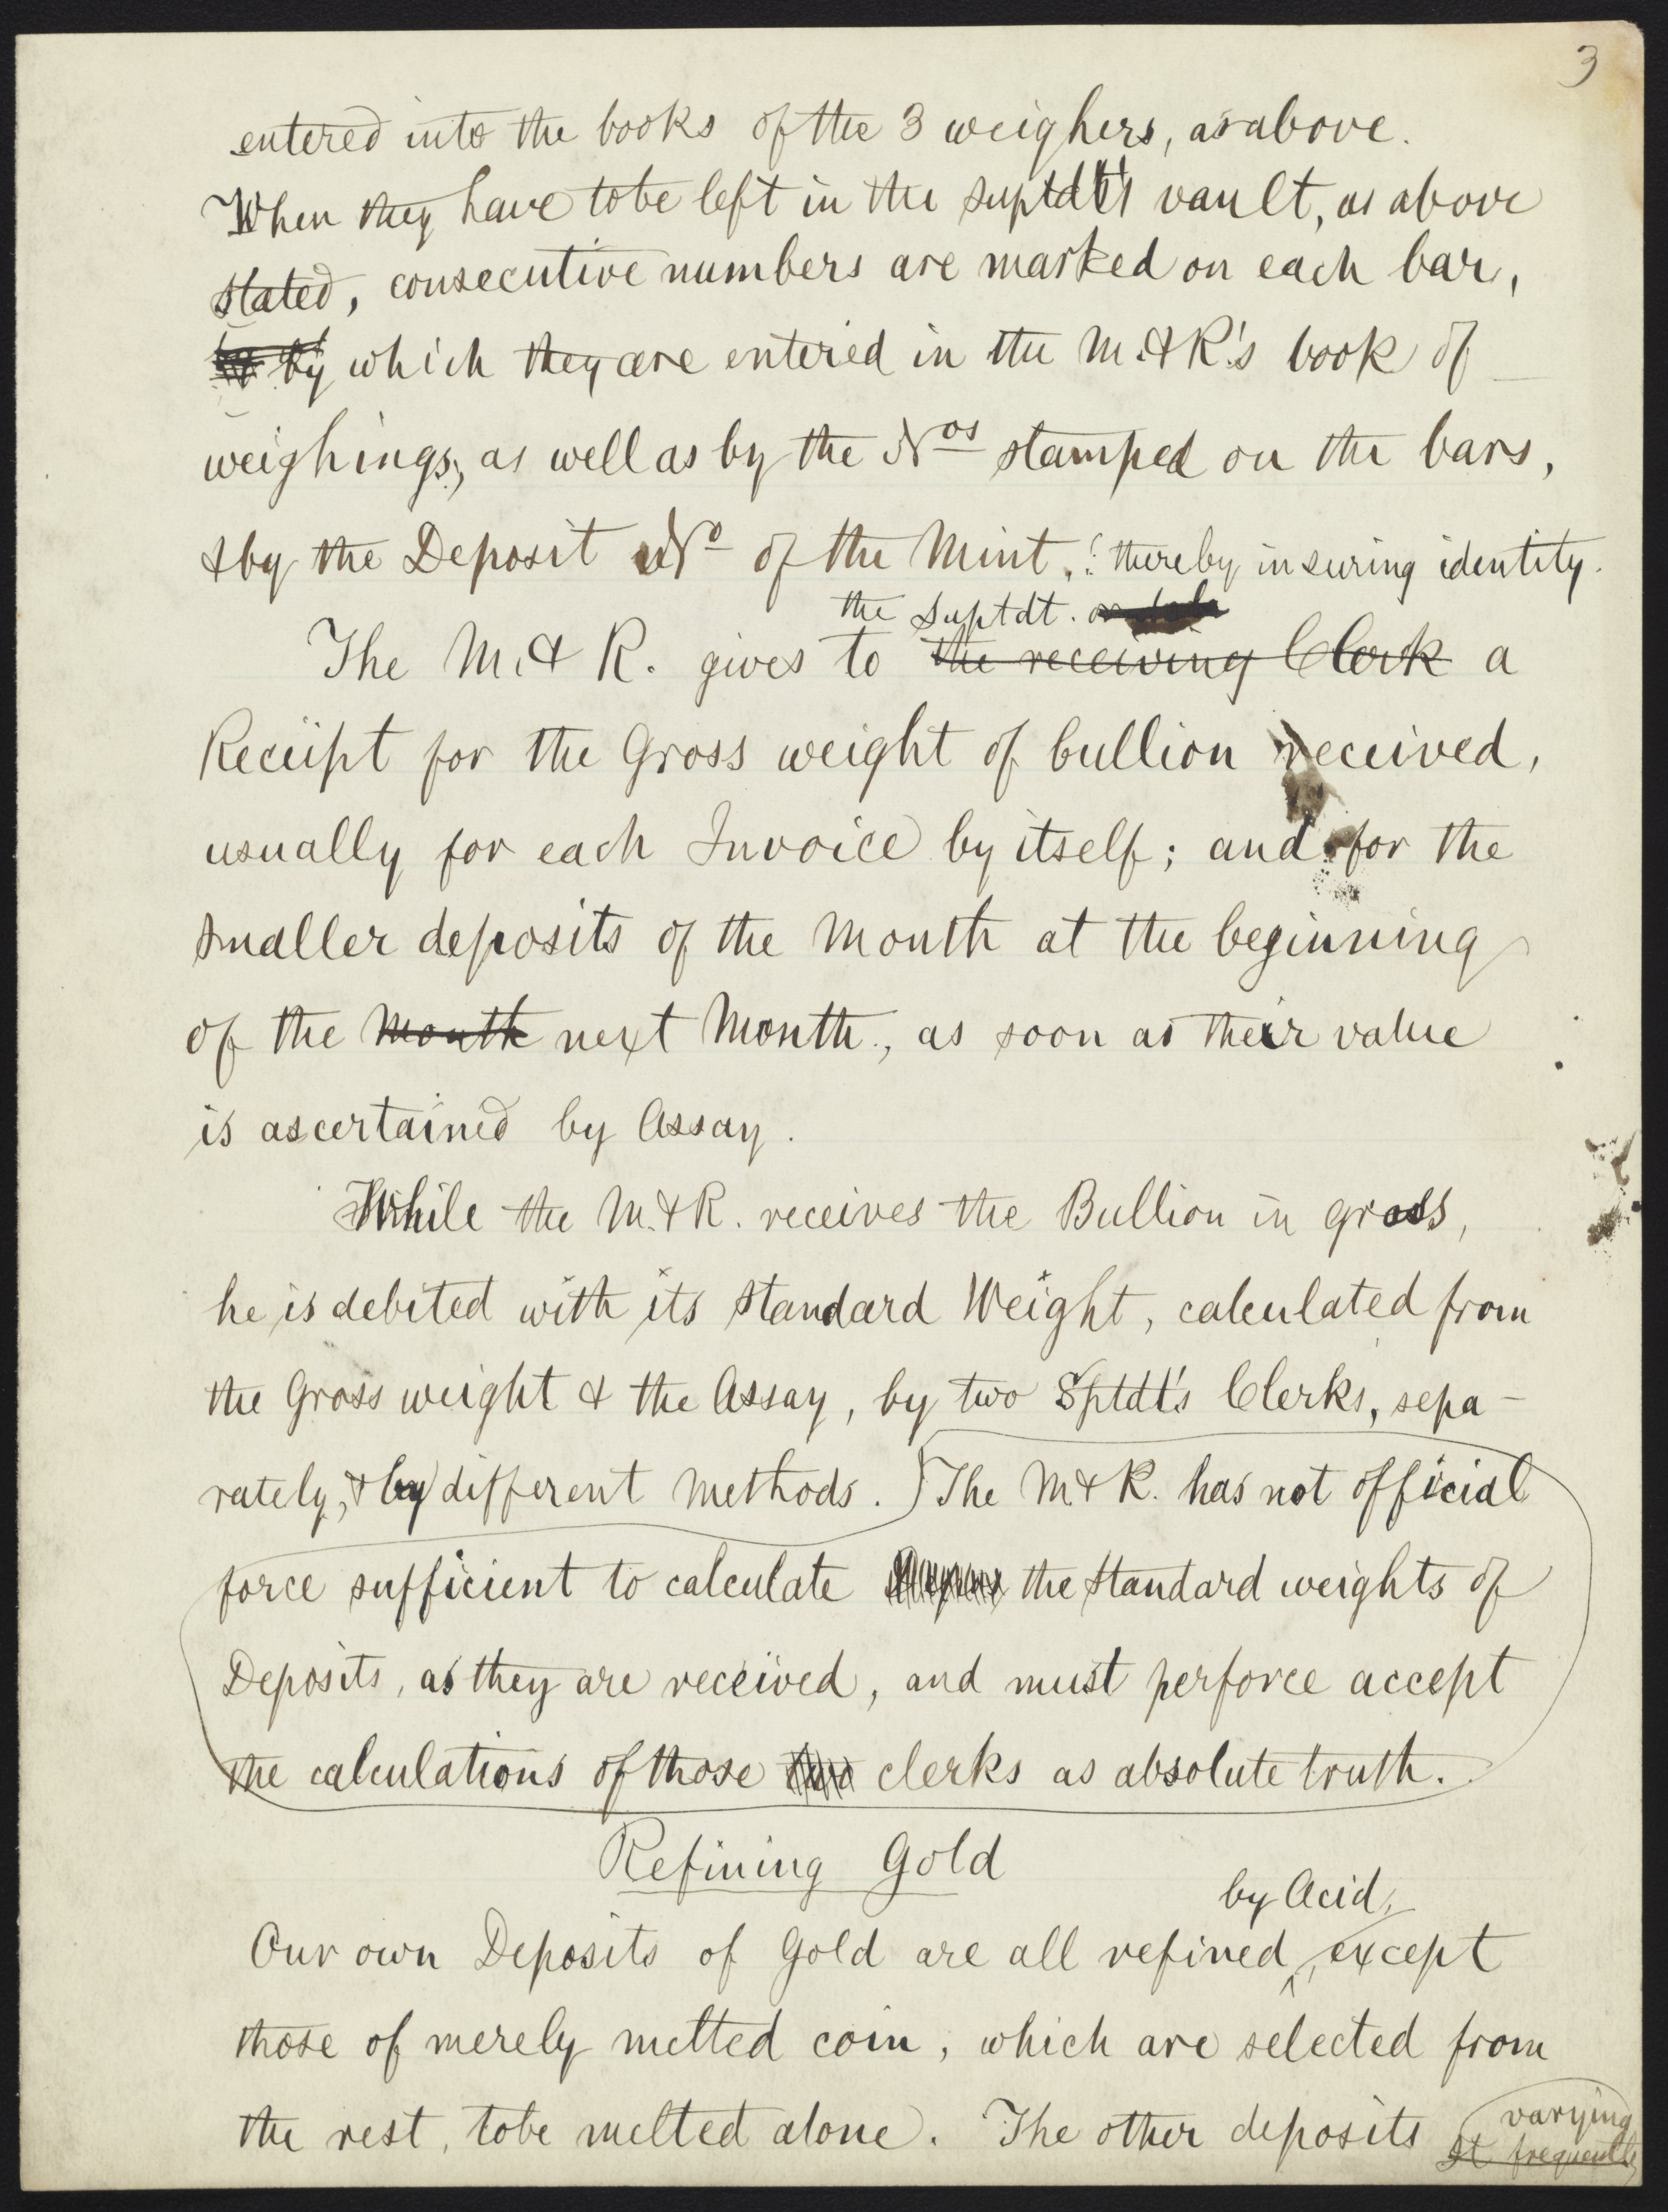 3
entered into the books of the 3 weighers, as above.
When they have to be left in the suptdt's vault, as above
stated, consecutive numbers are marked on each bar,
by which they are entered in the M.&R's book of
weighings, as well as by the Nos stamped on the bars,
& by the Deposit No of the Mint, thereby insuring identity.
the Suptdt.
The M.& R. gives to the receiving Clerk a
Receipt for the Gross weight of bullion received,
usually for each Invoice by itself; and for the
smaller deposits of the Month at the beginning
of the Month next Month, as soon as their value
is ascertained by Assay.
While the M.&R. receives the Bullion in gross,
he is debited with its standard Weight, calculated from
the Gross weight & the Assay, by two Sptdt's Clerks, sepa-
rately, & by different methods. The M&R. has not official
force sufficient to calculate the standard weights of
Deposits, as they are received, and must perforce accept
the calculations of those two clerks as absolute truth.
Refining Gold
by Acid,
Our own Deposits of Gold are all refined, except
those of merely melted coin, which are selected from
the rest, to be melted alone. The other deposits varying
frequently